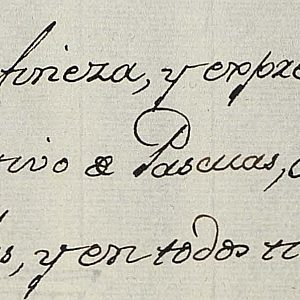 fineza, y expre
tivo de Pascuas,
s, y en todos ti